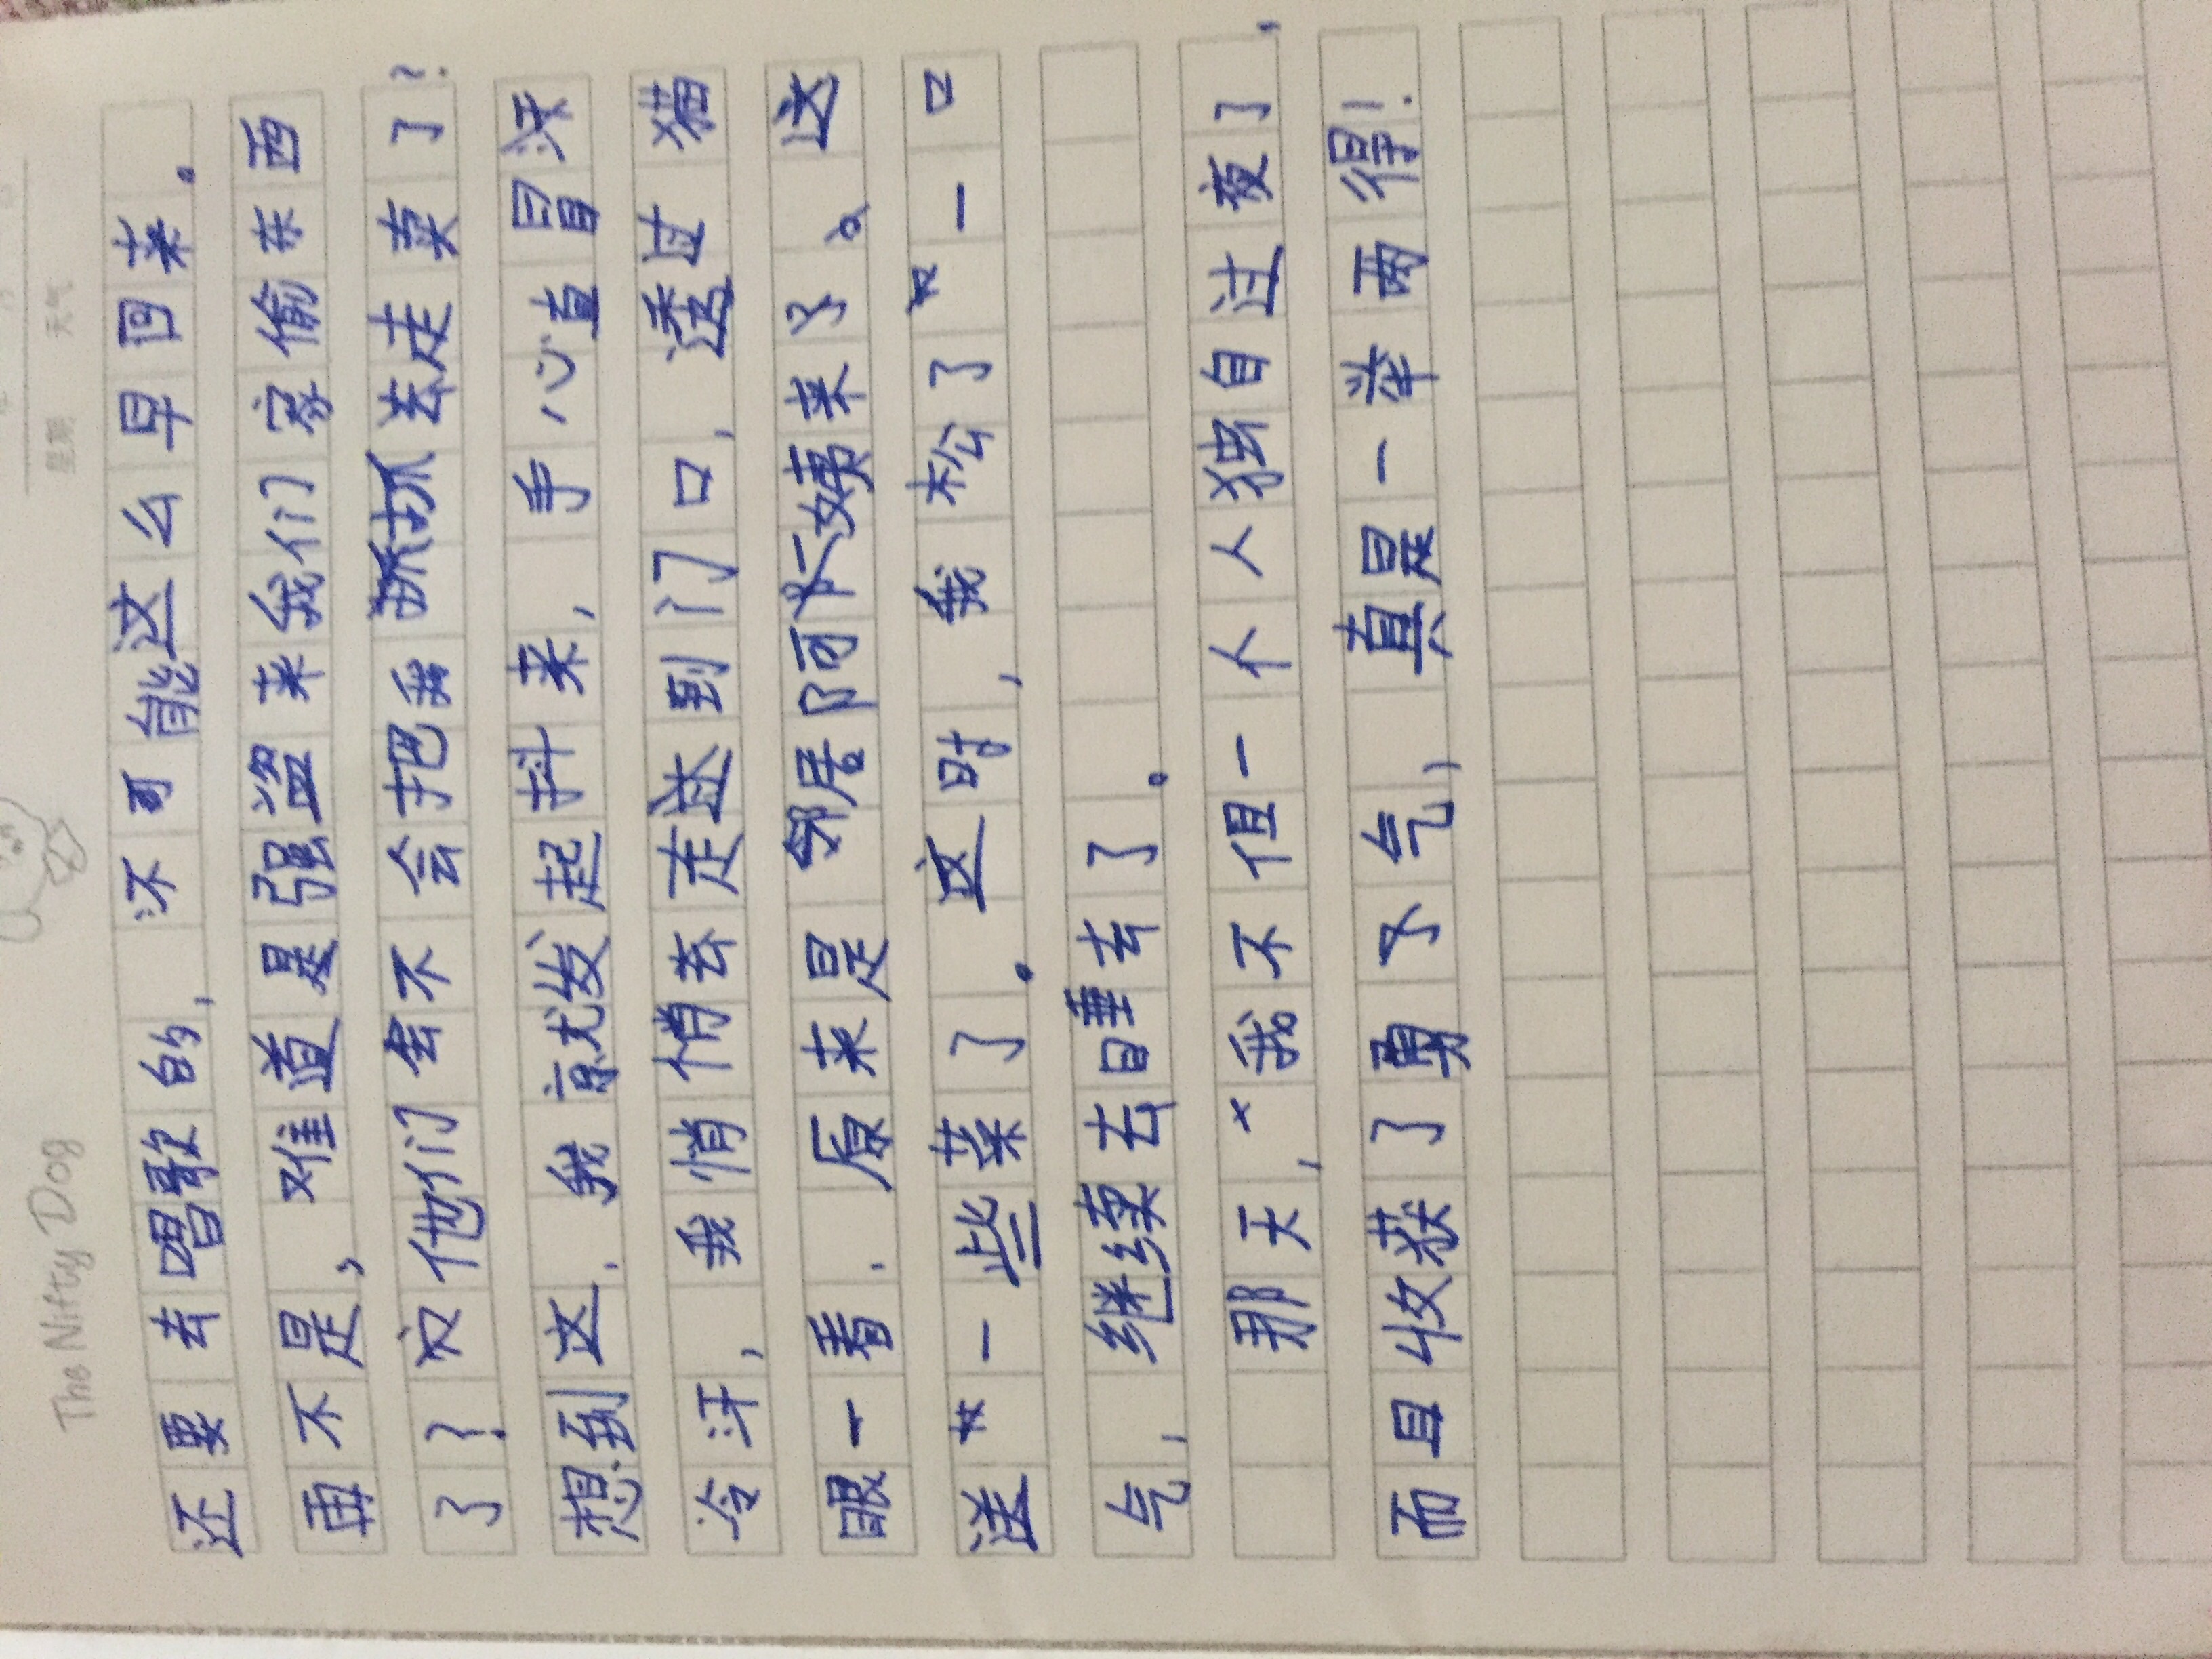 The Nifty Dog
星期 天气
还要去唱歌的,不可能这么早回来.
再不是,难道是强盗来我们家偷东西
了?他们会不会把我抓去走卖了?
想到这.我就发起抖来,手心直冒汗
冷汗,我悄悄去走到门口,透过猫
眼一看.原来是邻居阿姨来了。这
送一些菜了.这时,我松了一口
气,继续去睡去了.
那天,我不但一个人独自过夜了,
而且收获了勇气,真是一举两得!